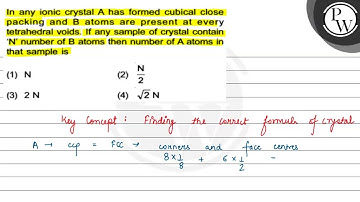 In any ionic crystal A has formed cubical close
packing and B atoms are present at every
tetrahedral voids. If any sample of crystal contain
'N' number of B atoms then number of A atoms in
that sample is
(1) N (2) N/2
(3) 2 N (4) √2 N
PW
Key Concept : Finding the correct formula of crystal
A → ccp = FCC → corners and face centres
8 × 1/8 + 6 × 1/2 =